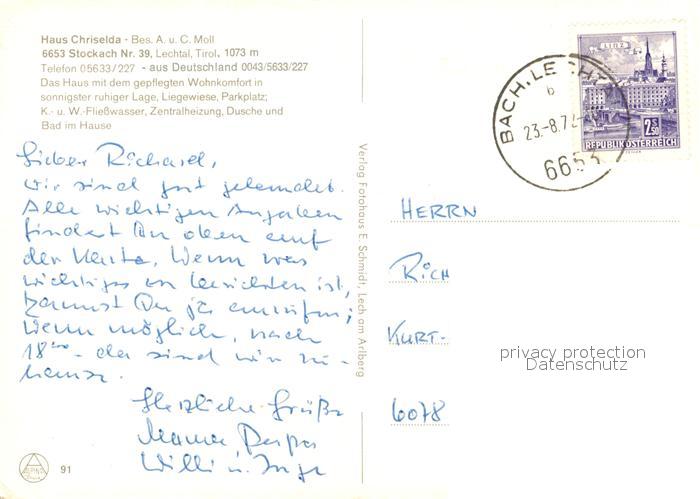 Haus Chriselda - Bes. A. u. C. Moll
6653 Stockach Nr. 39, Lechtal, Tirol, 1073 m
Telefon 05633/227 - aus Deutschland 0043/5633/227
Das Haus mit dem gepflegten Wohnkomfort in
sonnigster ruhiger Lage, Liegewiese, Parkplatz;
K.- u. W.-Fließwasser, Zentralheizung, Dusche und
Bad im Hause
Lieber Richard,
wir sind gut gelandet.
Alle wichtigen Angaben
findest Du oben auf
der Karte. Wenn was
wichtiges zu berichten ist,
kannst Du ja anrufen;
wenn möglich, nach
18°° - da sind wir zu-
hause.
Herzliche Grüße
Mama Papa
Willi u. Inge
91
Verlag Fotohaus E. Schmidt, Lech am Arlberg
LINZ
2.50
REPUBLIK ÖSTERREICH
BACH, LECHTAL
b
23.-8.72
6653
HERRN
RICH
KURT-
6078
privacy protection
Datenschutz